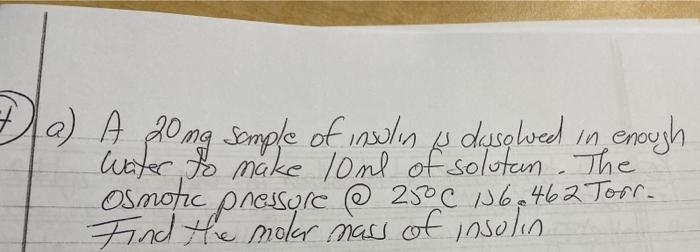 a) A 20mg sample of insulin is dissolved in enough
water to make 10ml of solution. The
osmotic pressure @ 25°C is 6.462 Torr.
Find the molar mass of insulin